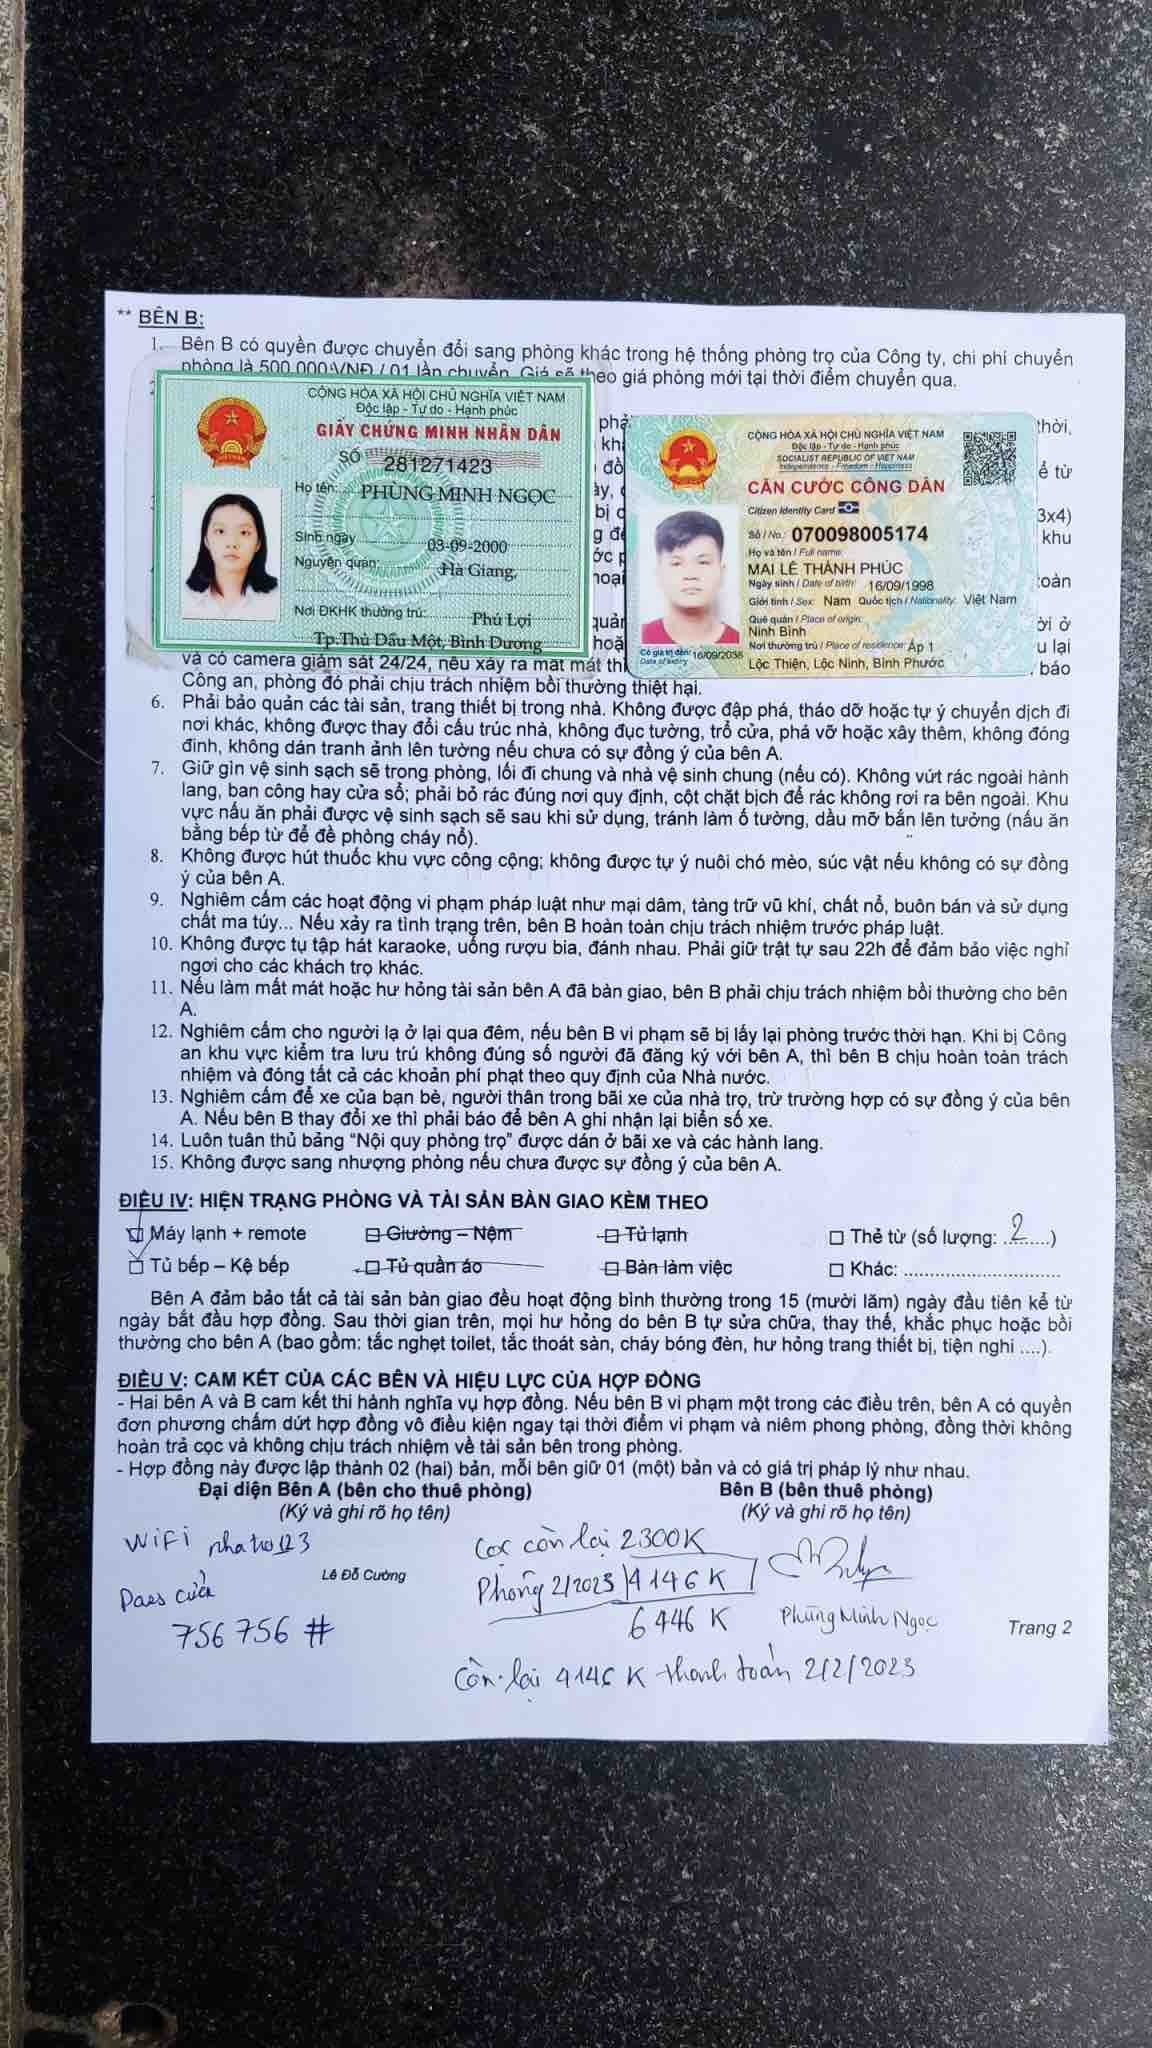 ** BÊN B:
1. Bên B có quyền được chuyển đổi sang phòng khác trong hệ thống phòng trọ của Công ty, chi phí chuyển
phòng là 500.000 VNĐ / 01 lần chuyển. Giá sẽ theo giá phòng mới tại thời điểm chuyển qua.
CỘNG HÒA XÃ HỘI CHỦ NGHĨA VIỆT NAM
Độc lập - Tự do - Hạnh phúc
GIẤY CHỨNG MINH NHÂN DÂN
SỐ 281271423
Họ tên: PHÙNG MINH NGỌC
Sinh ngày 03-09-2000
Nguyên quán: Hà Giang,
Nơi ĐKHK thường trú: Phú Lợi
Tp.Thủ Dầu Một, Bình Dương
CỘNG HÒA XÃ HỘI CHỦ NGHĨA VIỆT NAM
Độc lập - Tự do - Hạnh phúc
SOCIALIST REPUBLIC OF VIET NAM
Independence - Freedom - Happiness
CĂN CƯỚC CÔNG DÂN
Citizen Identity Card
Số / No.: 070098005174
Họ và tên / Full name:
MAI LÊ THÀNH PHÚC
Ngày sinh / Date of birth: 16/09/1998
Giới tính / Sex: Nam Quốc tịch / Nationality: Việt Nam
Quê quán / Place of origin:
Ninh Bình
Nơi thường trú / Place of residence: Ấp 1
Lộc Thiện, Lộc Ninh, Bình Phước
Có giá trị đến: 16/09/2038
Date of expiry
thời,
ể từ
3x4)
khu
toàn
ời ở
u lại
và có camera giám sát 24/24, nếu xảy ra mất mát thì báo
Công an, phòng đó phải chịu trách nhiệm bồi thường thiệt hại.
6. Phải bảo quản các tài sản, trang thiết bị trong nhà. Không được đập phá, tháo dỡ hoặc tự ý chuyển dịch đi
nơi khác, không được thay đổi cấu trúc nhà, không đục tường, trổ cửa, phá vỡ hoặc xây thêm, không đóng
đinh, không dán tranh ảnh lên tường nếu chưa có sự đồng ý của bên A.
7. Giữ gìn vệ sinh sạch sẽ trong phòng, lối đi chung và nhà vệ sinh chung (nếu có). Không vứt rác ngoài hành
lang, ban công hay cửa sổ; phải bỏ rác đúng nơi quy định, cột chặt bịch để rác không rơi ra bên ngoài. Khu
vực nấu ăn phải được vệ sinh sạch sẽ sau khi sử dụng, tránh làm ố tường, dầu mỡ bắn lên tường (nấu ăn
bằng bếp từ để đề phòng cháy nổ).
8. Không được hút thuốc khu vực công cộng; không được tự ý nuôi chó mèo, súc vật nếu không có sự đồng
ý của bên A.
9. Nghiêm cấm các hoạt động vi phạm pháp luật như mại dâm, tàng trữ vũ khí, chất nổ, buôn bán và sử dụng
chất ma túy... Nếu xảy ra tình trạng trên, bên B hoàn toàn chịu trách nhiệm trước pháp luật.
10. Không được tụ tập hát karaoke, uống rượu bia, đánh nhau. Phải giữ trật tự sau 22h để đảm bảo việc nghỉ
ngơi cho các khách trọ khác.
11. Nếu làm mất mát hoặc hư hỏng tài sản bên A đã bàn giao, bên B phải chịu trách nhiệm bồi thường cho bên
A.
12. Nghiêm cấm cho người lạ ở lại qua đêm, nếu bên B vi phạm sẽ bị lấy lại phòng trước thời hạn. Khi bị Công
an khu vực kiểm tra lưu trú không đúng số người đã đăng ký với bên A, thì bên B chịu hoàn toàn trách
nhiệm và đóng tất cả các khoản phí phạt theo quy định của Nhà nước.
13. Nghiêm cấm để xe của bạn bè, người thân trong bãi xe của nhà trọ, trừ trường hợp có sự đồng ý của bên
A. Nếu bên B thay đổi xe thì phải báo để bên A ghi nhận lại biển số xe.
14. Luôn tuân thủ bảng “Nội quy phòng trọ” được dán ở bãi xe và các hành lang.
15. Không được sang nhượng phòng nếu chưa được sự đồng ý của bên A.
ĐIỀU IV: HIỆN TRẠNG PHÒNG VÀ TÀI SẢN BÀN GIAO KÈM THEO
☑ Máy lạnh + remote ☐ Giường – Nệm ☐ Tủ lạnh ☐ Thẻ từ (số lượng: ...2...)
☑ Tủ bếp – Kệ bếp ☐ Tủ quần áo ☐ Bàn làm việc ☐ Khác: ............................
Bên A đảm bảo tất cả tài sản bàn giao đều hoạt động bình thường trong 15 (mười lăm) ngày đầu tiên kể từ
ngày bắt đầu hợp đồng. Sau thời gian trên, mọi hư hỏng do bên B tự sửa chữa, thay thế, khắc phục hoặc bồi
thường cho bên A (bao gồm: tắc nghẹt toilet, tắc thoát sàn, cháy bóng đèn, hư hỏng trang thiết bị, tiện nghi ....).
ĐIỀU V: CAM KẾT CỦA CÁC BÊN VÀ HIỆU LỰC CỦA HỢP ĐỒNG
- Hai bên A và B cam kết thi hành nghĩa vụ hợp đồng. Nếu bên B vi phạm một trong các điều trên, bên A có quyền
đơn phương chấm dứt hợp đồng vô điều kiện ngay tại thời điểm vi phạm và niêm phong phòng, đồng thời không
hoàn trả cọc và không chịu trách nhiệm về tài sản bên trong phòng.
- Hợp đồng này được lập thành 02 (hai) bản, mỗi bên giữ 01 (một) bản và có giá trị pháp lý như nhau.
Đại diện Bên A (bên cho thuê phòng) Bên B (bên thuê phòng)
(Ký và ghi rõ họ tên) (Ký và ghi rõ họ tên)
WiFi nhatro123
Cọc còn lại 2300K
Lê Đỗ Cường
Phòng 2/2023 4146 K
Pass cửa
756 756 #
6446 K
Phùng Minh Ngọc
Trang 2
Còn lại 4146 K thanh toán 2/2/2023